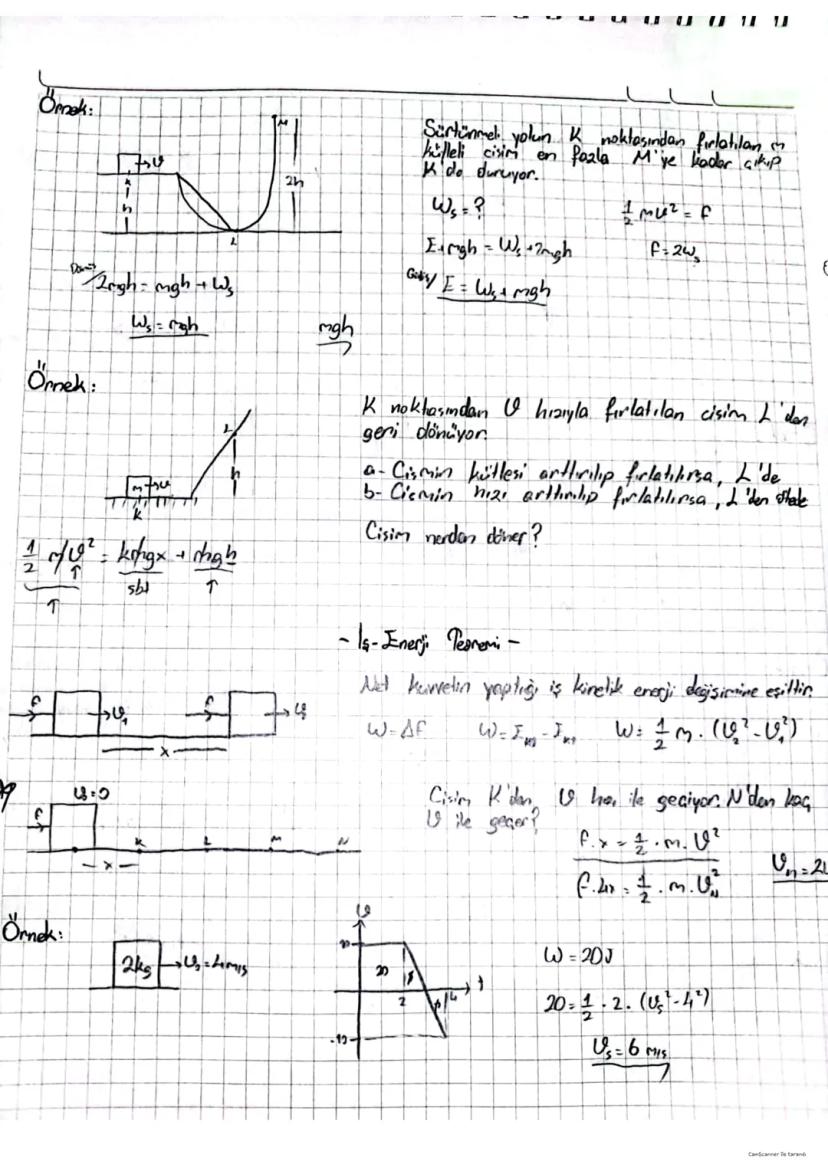 Örnek:
M
→ϑ
K
h
2h
L
Sürtünmeli yolun K noktasından fırlatılan m
kütleli cisim en fazla M'ye kadar çıkıp
K'da duruyor.
Ws = ?
1/2 mϑ² = E
E+mgh = Ws+2mgh
E=2Ws
2mgh = mgh + Ws
E = Ws + mgh
Ws = mgh
mgh
Örnek:
L
h
m →ϑ
K
K noktasından ϑ hızıyla fırlatılan cisim L'den
geri dönüyor.
a- Cismin kütlesi arttırılıp fırlatılırsa, L'de
b- Cismin hızı arttırılıp fırlatılırsa, L'den ötede
Cisim nerden döner?
1/2 mϑ² = kmgx + mgh
↑ sbt ↑
↑
- İş-Enerji Teoremi -
Net kuvvetin yaptığı iş kinetik enerji değişimine eşittir.
F →ϑ₁ F →ϑ₂
x
W = ΔE
W = 1/2 m . (ϑ₂² - ϑ₁²)
ϑ=0
F
K L M N
x
Cisim K'dan ϑ hızı ile geçiyor. N'den kaç
ϑ ile geçer?
F.x = 1/2 . m . ϑ²
F.4x = 1/2 . m . ϑN²
Örnek:
2kg
=4m/s
ϑ
10
20
2
4
t
-10
W = 20J
20 = 1/2 . 2 . (ϑs² - 4²)
ϑs = 6 m/s
CamScanner ile tarandı